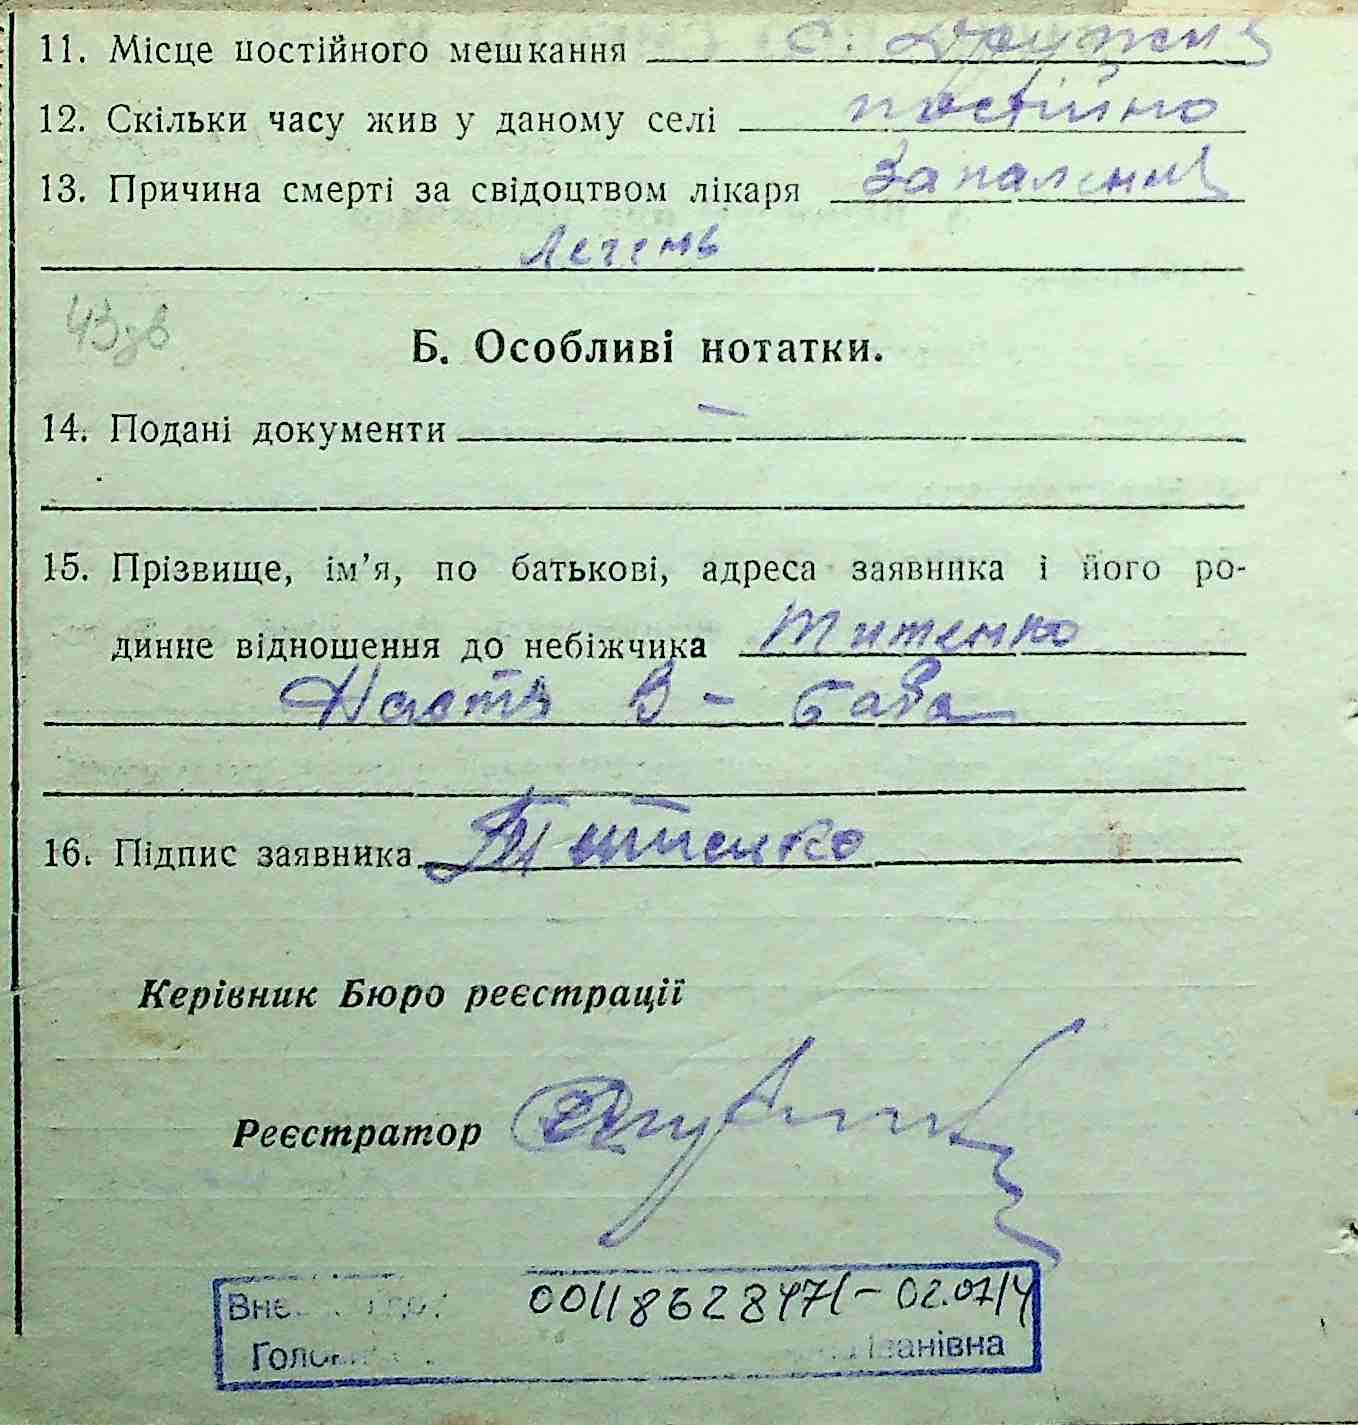 11. Місце постійного мешкання с. Дружня
12. Скільки часу жив у даному селі постійно
13. Причина смерті за свідоцтвом лікаря Запалення
легень
Б. Особливі нотатки.
14. Подані документи —
15. Прізвище, ім’я, по батькові, адреса заявника і його ро-
динне відношення до небіжчика Титенко
Настя В - баба
16. Підпис заявника Титенко
Керівник Бюро реєстрації
Реєстратор
02.07.14
Іванівна